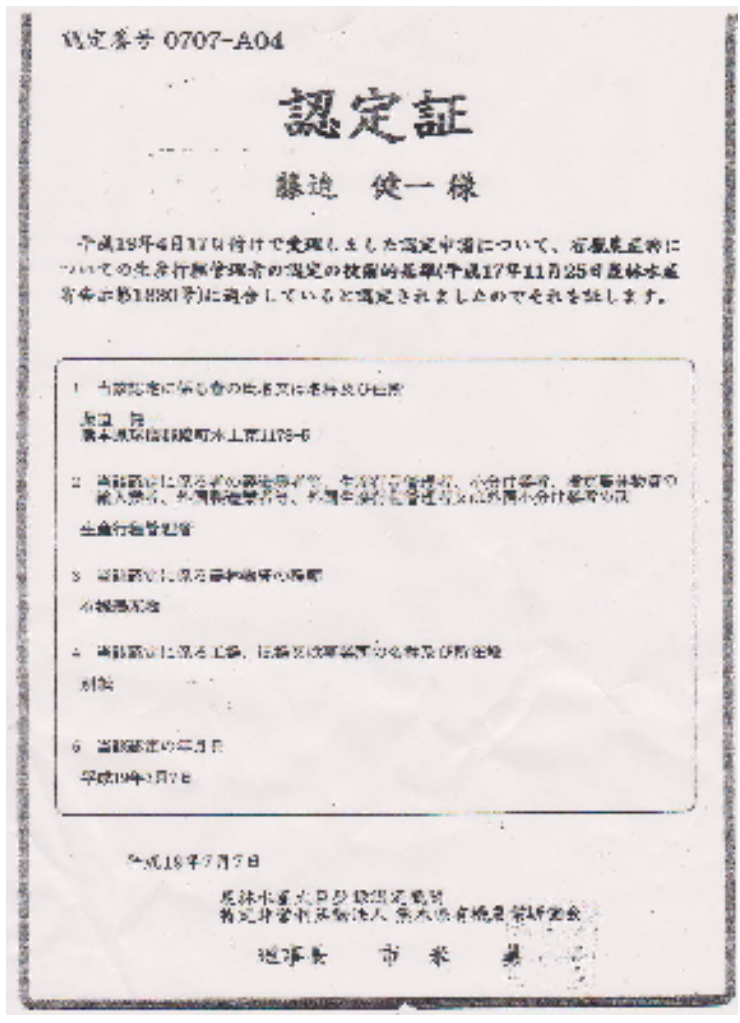 認定番号 0707-A04
認定証
藤迫 健一 様
平成19年4月17日付けで受理しました認定申請について、有機農産物に
ついての生産行程管理者の認定の技術的基準(平成17年11月25日農林水産
省告示第1830号)に適合していると認定されましたのでそれを証します。
1 当該認定に係る者の氏名又は名称及び住所
藤迫 健一
熊本県球磨郡 町水上 1178-6
2 当該認定に係る者の製造業者等、生産行程管理者、小分け業者、指定農林物資の
輸入業者、外国製造業者等、外国生産行程管理者又は外国小分け業者の別
生産行程管理者
3 当該認定に係る農林物資の種類
有機農産物
4 当該認定に係る工場、ほ場又は事業所の名称及び所在地
別紙
5 当該認定の年月日
平成19年7月7日
平成19年7月7日
農林水産大臣登録認定機関
特定非営利活動法人 熊本県有機農業研究会
理事長 市